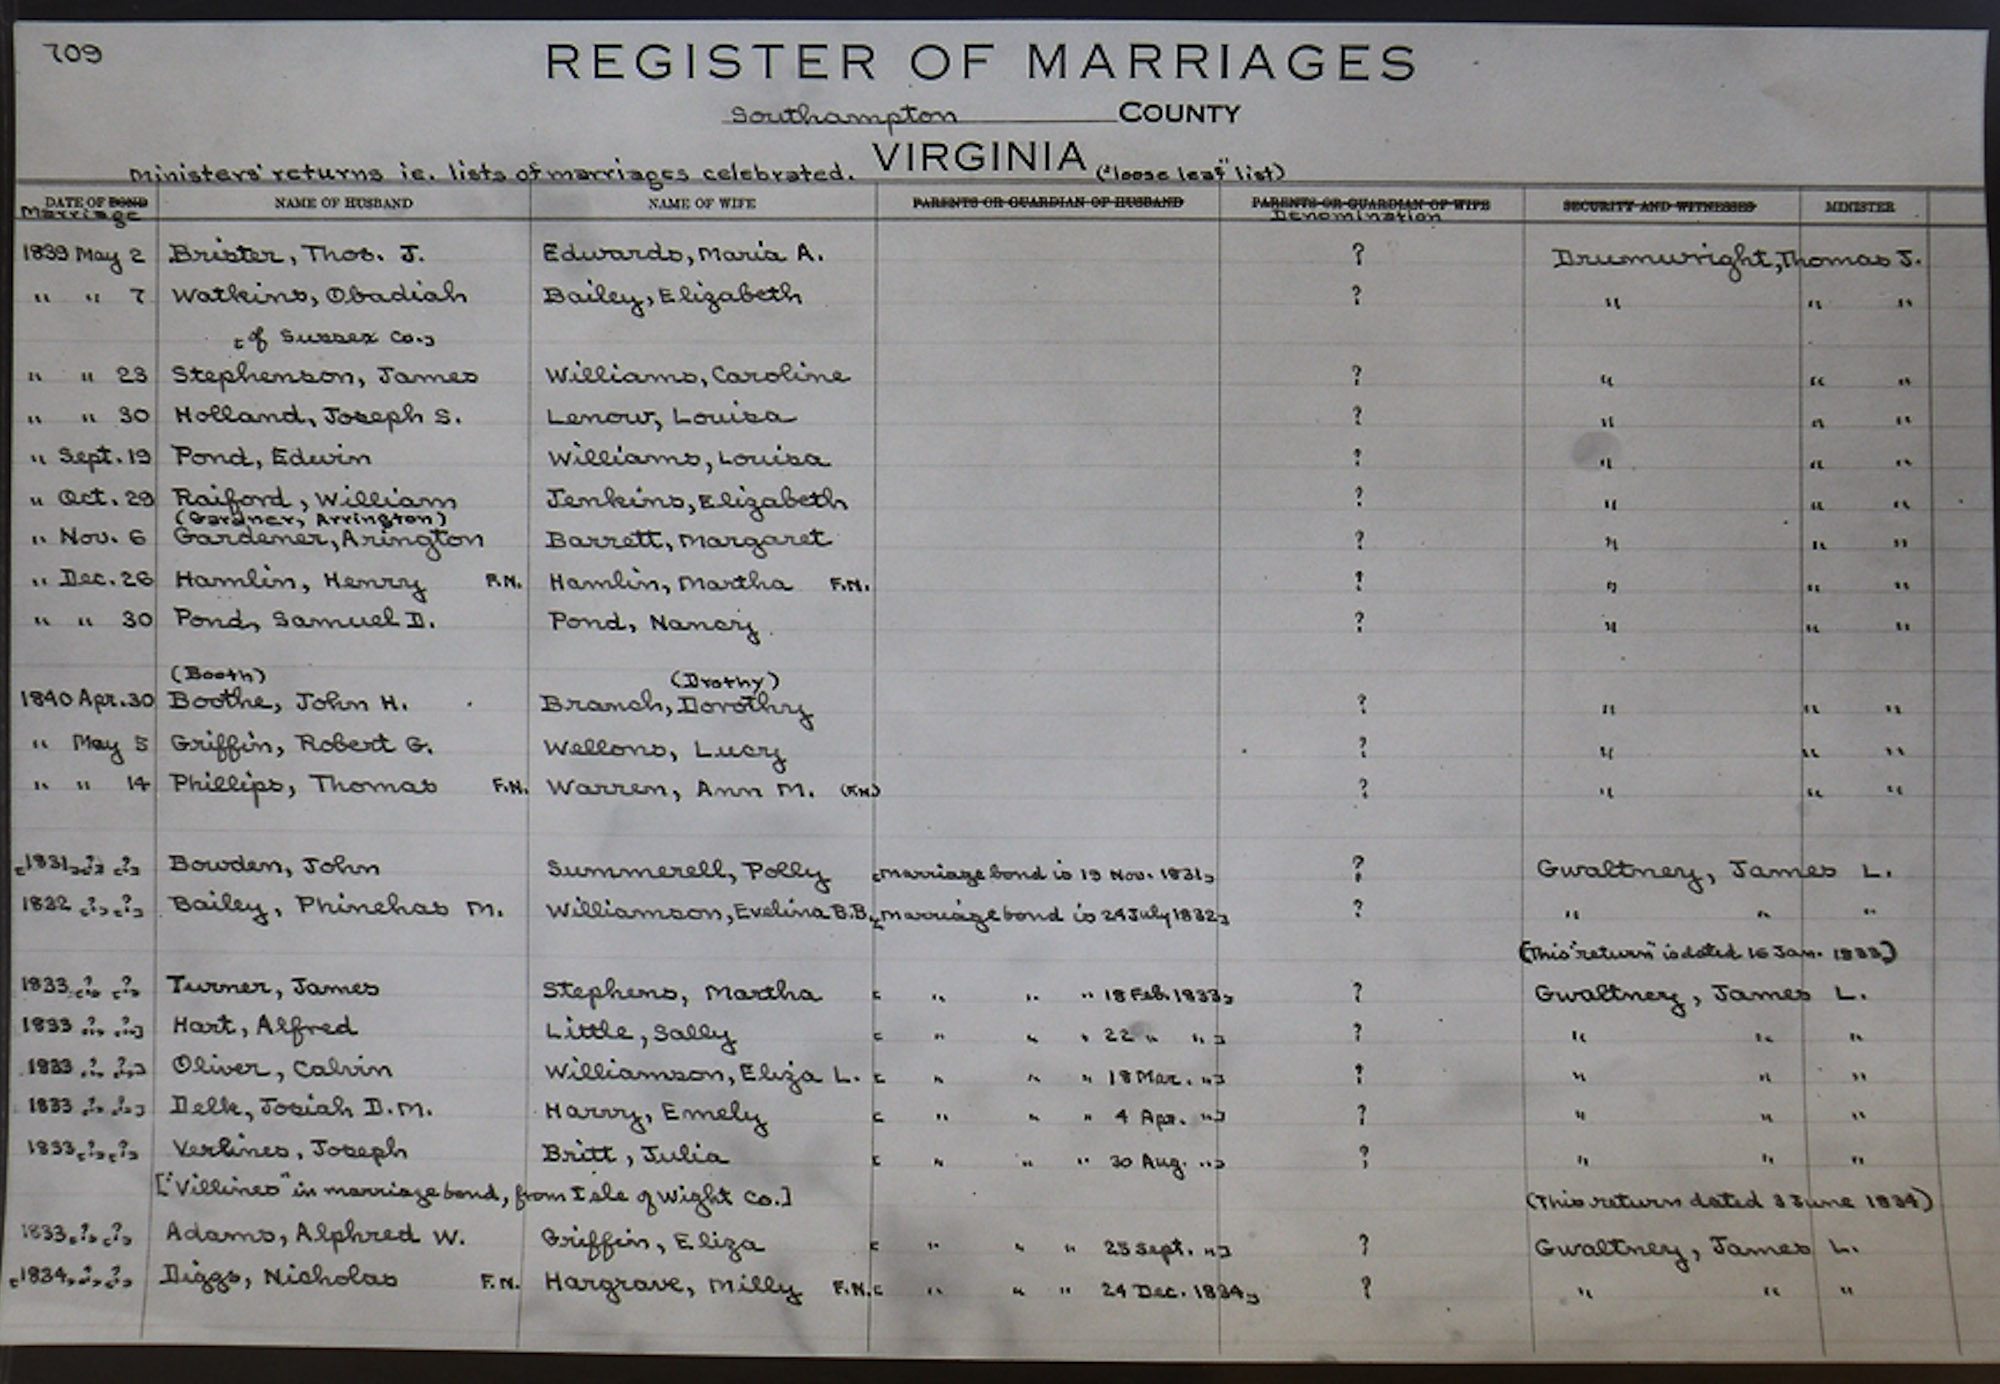 709
REGISTER OF MARRIAGES
Southampton COUNTY
VIRGINIA
Ministers' returns ie. lists of marriages celebrated. ("loose leaf" list)
DATE OF BOND NAME OF HUSBAND NAME OF WIFE PARENTS OR GUARDIAN OF HUSBAND PARENTS OR GUARDIAN OF WIFE SECURITY AND WITNESSES MINISTER
Marriage Denomination
1839 May 2 Brister, Thos. J. Edwards, Maria A. ? Drumwright, Thomas J.
" " 7 Watkins, Obadiah Bailey, Elizabeth ? " " "
[of Sussex Co.]
" " 23 Stephenson, James Williams, Caroline ? " " "
" " 30 Holland, Joseph S. Lenow, Louisa ? " " "
" Sept. 19 Pond, Edwin Williams, Louisa ? " " "
" Oct. 29 Raiford, William Jenkins, Elizabeth ? " " "
(Gardner, Arrington)
" Nov. 6 Gardener, Arington Barrett, Margaret ? " " "
" Dec. 26 Hamlin, Henry F.N. Hamlin, Martha F.N. ? " " "
" " 30 Pond, Samuel D. Pond, Nancy ? " " "
(Booth) (Drothy)
1840 Apr. 30 Boothe, John H. Branch, Dorothy ? " " "
" May 5 Griffin, Robert G. Wellons, Lucy ? " " "
" " 14 Phillips, Thomas F.N. Warren, Ann M. (F.N.) ? " " "
[1831] [?] [?] Bowden, John Summerell, Polly [marriage bond is 19 Nov. 1831] ? Gwaltney, James L.
1832 [?] [?] Bailey, Phinehas M. Williamson, Evelina B.B. [marriage bond is 24 July 1832] ? " " "
(This "return" is dated 16 Jan. 1833)
1833 [?] [?] Turner, James Stephens, Martha [ " " " 18 Feb. 1833] ? Gwaltney, James L.
1833 [?] [?] Hart, Alfred Little, Sally [ " " " 22 " "] ? " " "
1833 [?] [?] Oliver, Calvin Williamson, Eliza L. [ " " " 18 Mar. "] ? " " "
1833 [?] [?] Delk, Josiah D.M. Harvy, Emely [ " " " 4 Apr. "] ? " " "
1833 [?] [?] Verlines, Joseph Britt, Julia [ " " " 30 Aug. "] ? " " "
["Villines" in marriage bond, from Isle of Wight Co.] (This return dated 3 June 1834)
1833 [?] [?] Adams, Alphred W. Griffin, Eliza [ " " " 23 Sept. "] ? Gwaltney, James L.
[1834] [?] [?] Diggs, Nicholas F.N. Hargrave, Milly F.N. [ " " " 24 Dec. 1834] ? " " "